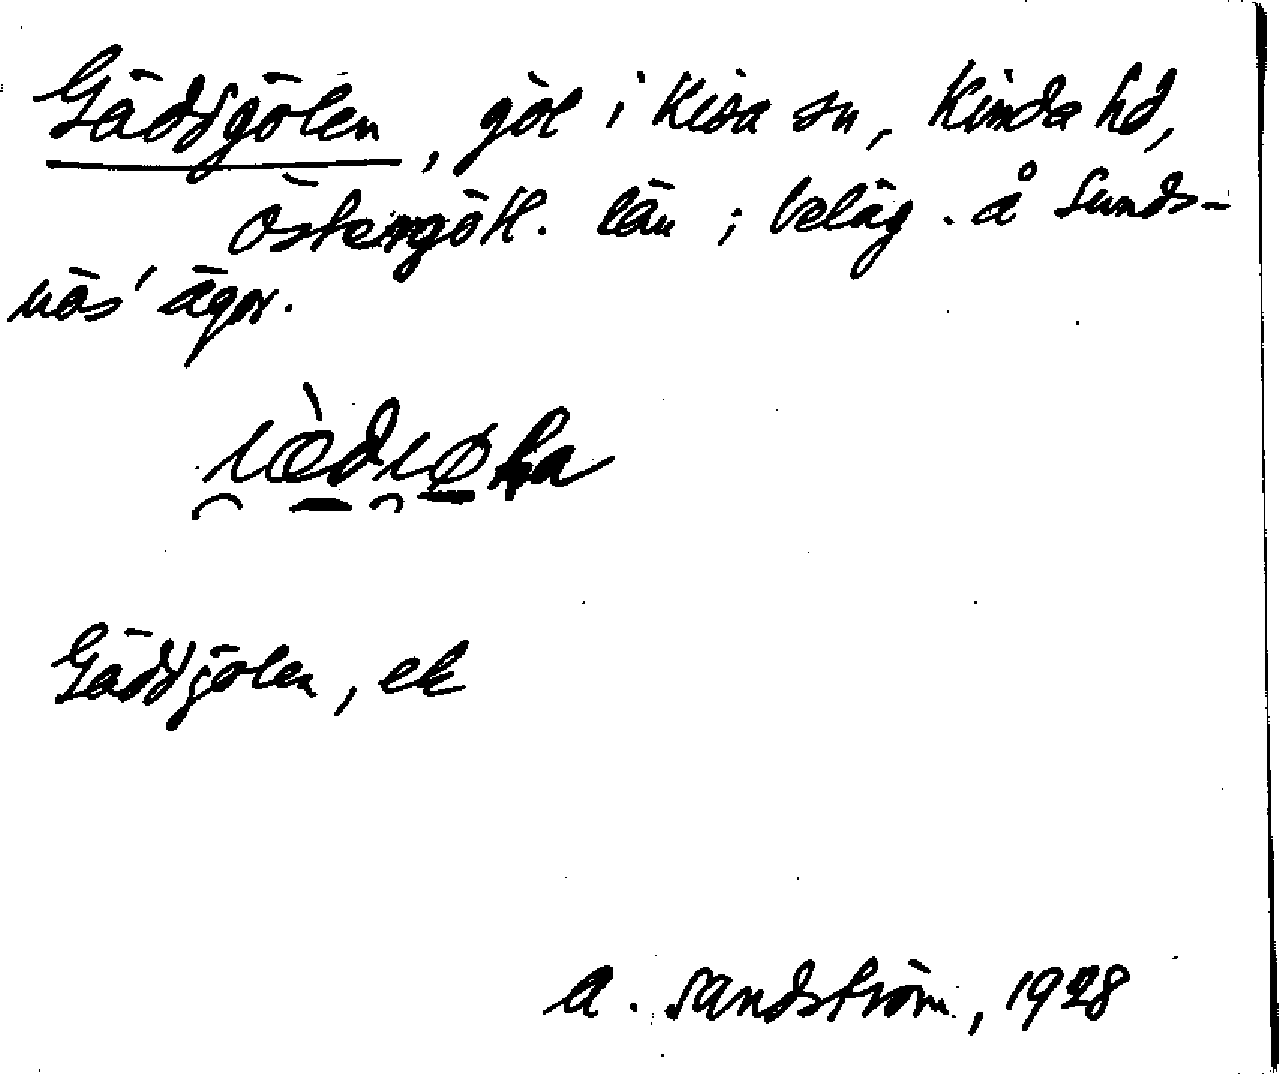 Gäddgölen, göl i Kisa sn, Kinda hd,
Östergötl. län; beläg. å Sunds-
näs' ägor.
Gäddjölen, ek
A. Sandström, 1928